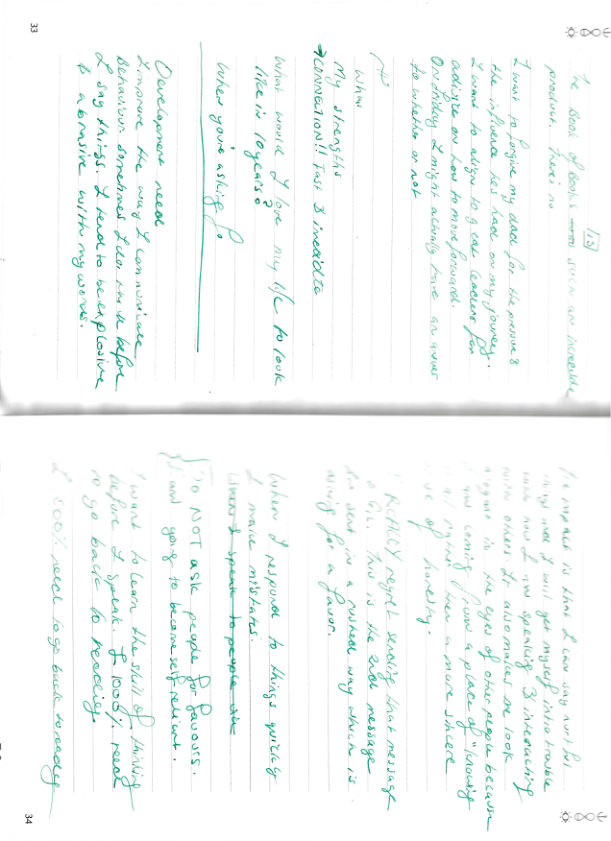 33
151
The Book of Books such an incredible
product. There is no
I want to forgive my dad for the pressure &
the influence he's had on my journey.
I want to align to great leaders for
advice on how to move forward.
On Friday I might actually have an answer
to whether or not
When
My strengths
→ CONNECTION!! Fast & incredible
What would I love my life to look
like in 10 years?
When you're asking fo
Development need
Improve the way I communicate
Behaviour sometimes I do this before
I say things. I tend to be explosive
& abrasive with my words.
impact is that I can say hurtful
things and I will get myself into trouble
with how I am speaking & interacting
with others. It also makes me look
arrogant in the eyes of other people because
I am coming from a place of "knowing
it all" rather than a more sincere
of honesty.
I REALLY regret sending that message
to This is the 2nd message
I've sent in a rushed way which is
asking for a favor.
When I respond to things quickly
I make mistakes.
When I speak to people
Do NOT ask people for favours.
I am going to become self reliant.
I want to learn the skill of thinking
before I speak. I 1000% need
to go back to reading.
I 1000% need to go back to reading
34